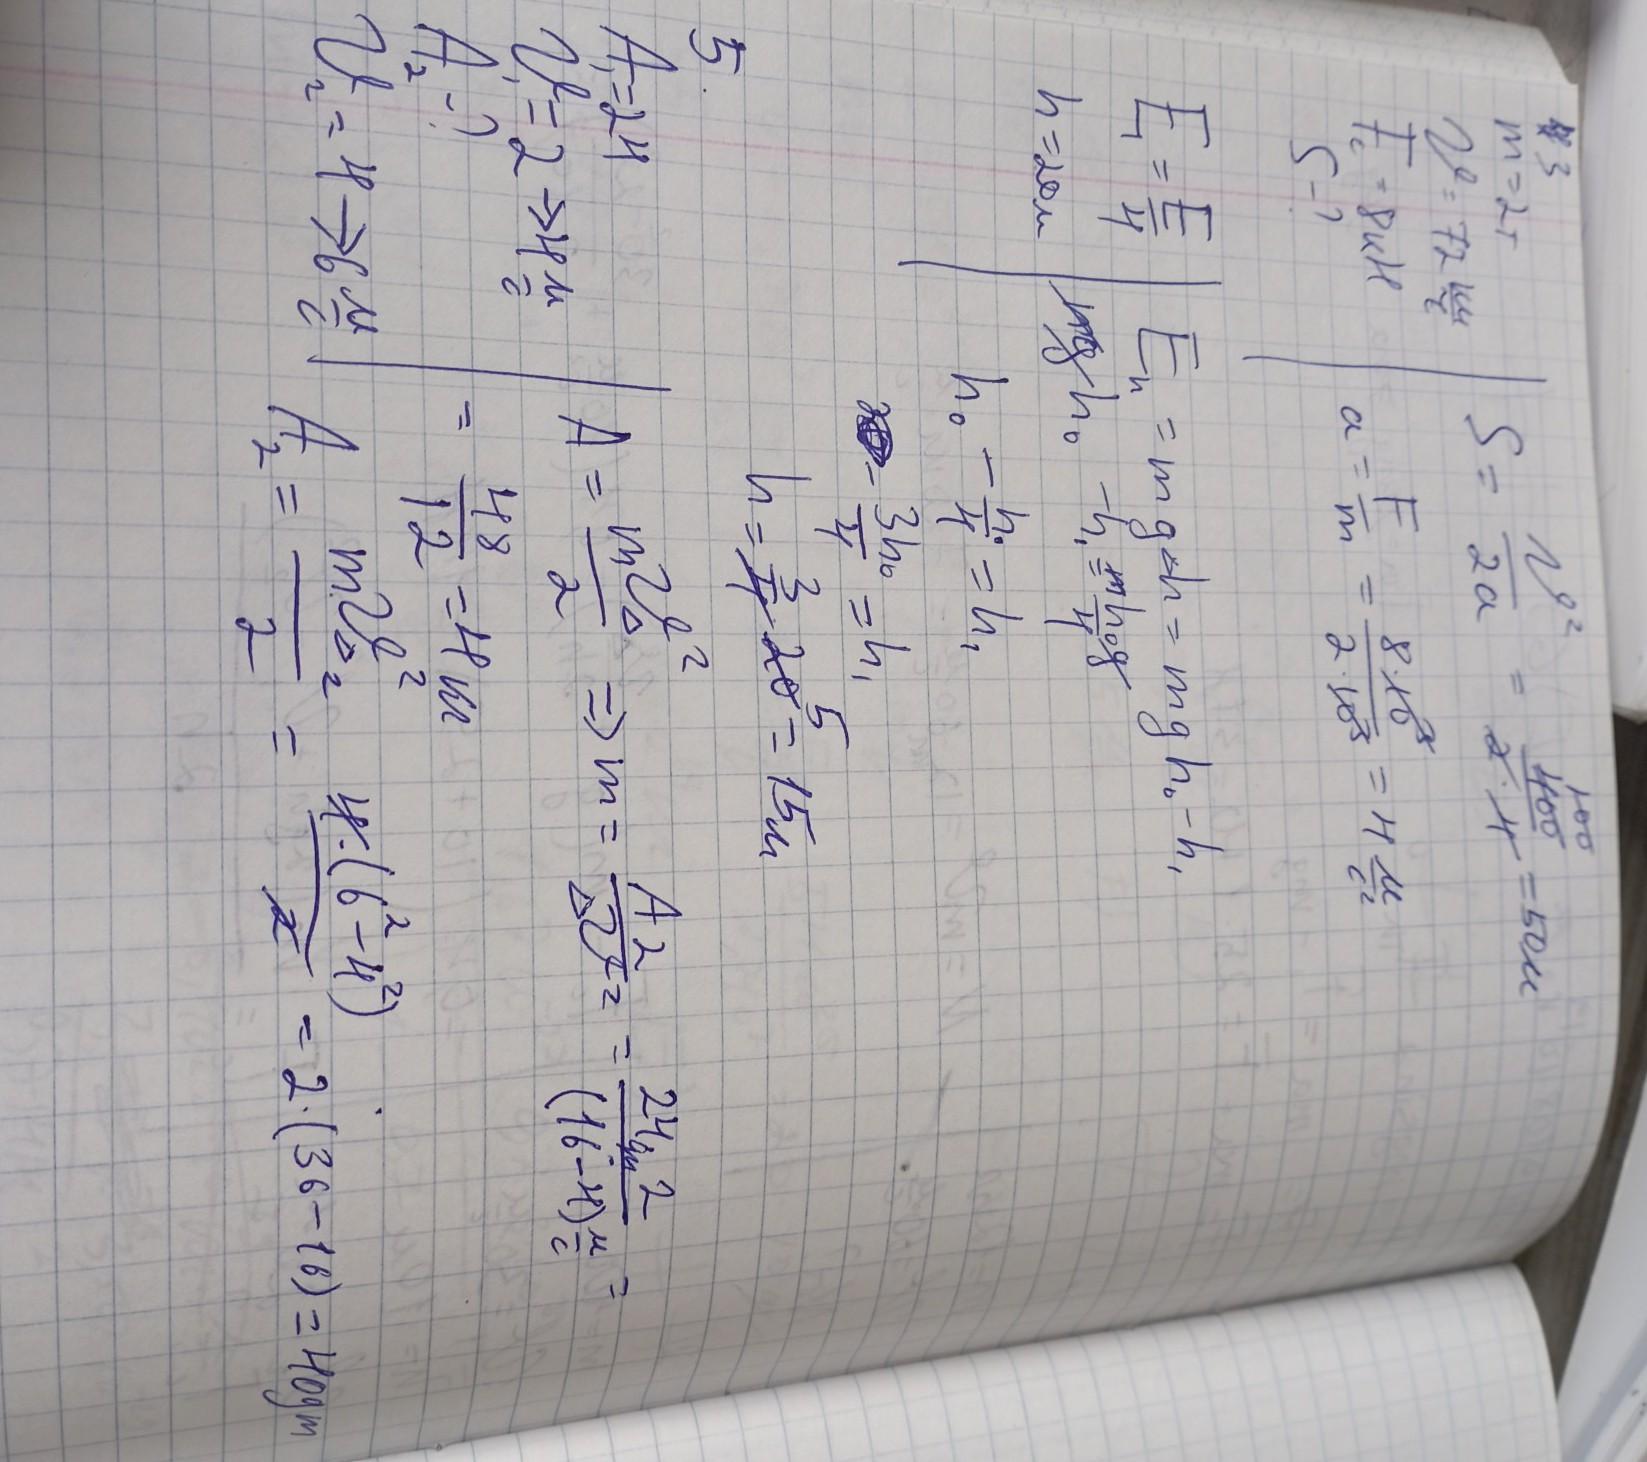 №3
m=2т
V=72 км/ч
Fc=8кН
S-?
S = V²/2a = 400/2·4 = 50м
100
a = F/m = 8·10³/2·10³ = 4 м/с²
E₁ = E/4
h=20м
Eп = mgΔh = mgh₀-h₁
mgh₀ -h₁ = mh₀g/4
h₀ - h₀/4 = h₁
3h₀/4 = h₁
h = 3/4 · 20 = 15м
5
5.
A₁=24
V₁=2→4 м/с
A₂-?
V₂=4→6 м/с
A = mV△²/2 ⇒ m = A2/△V² = 24дж2/(16-4)м/с =
= 48/12 = 4кг
A₂ = mV△₂²/2 = 4·(6²-4²)/2 = 2·(36-16)=40дж